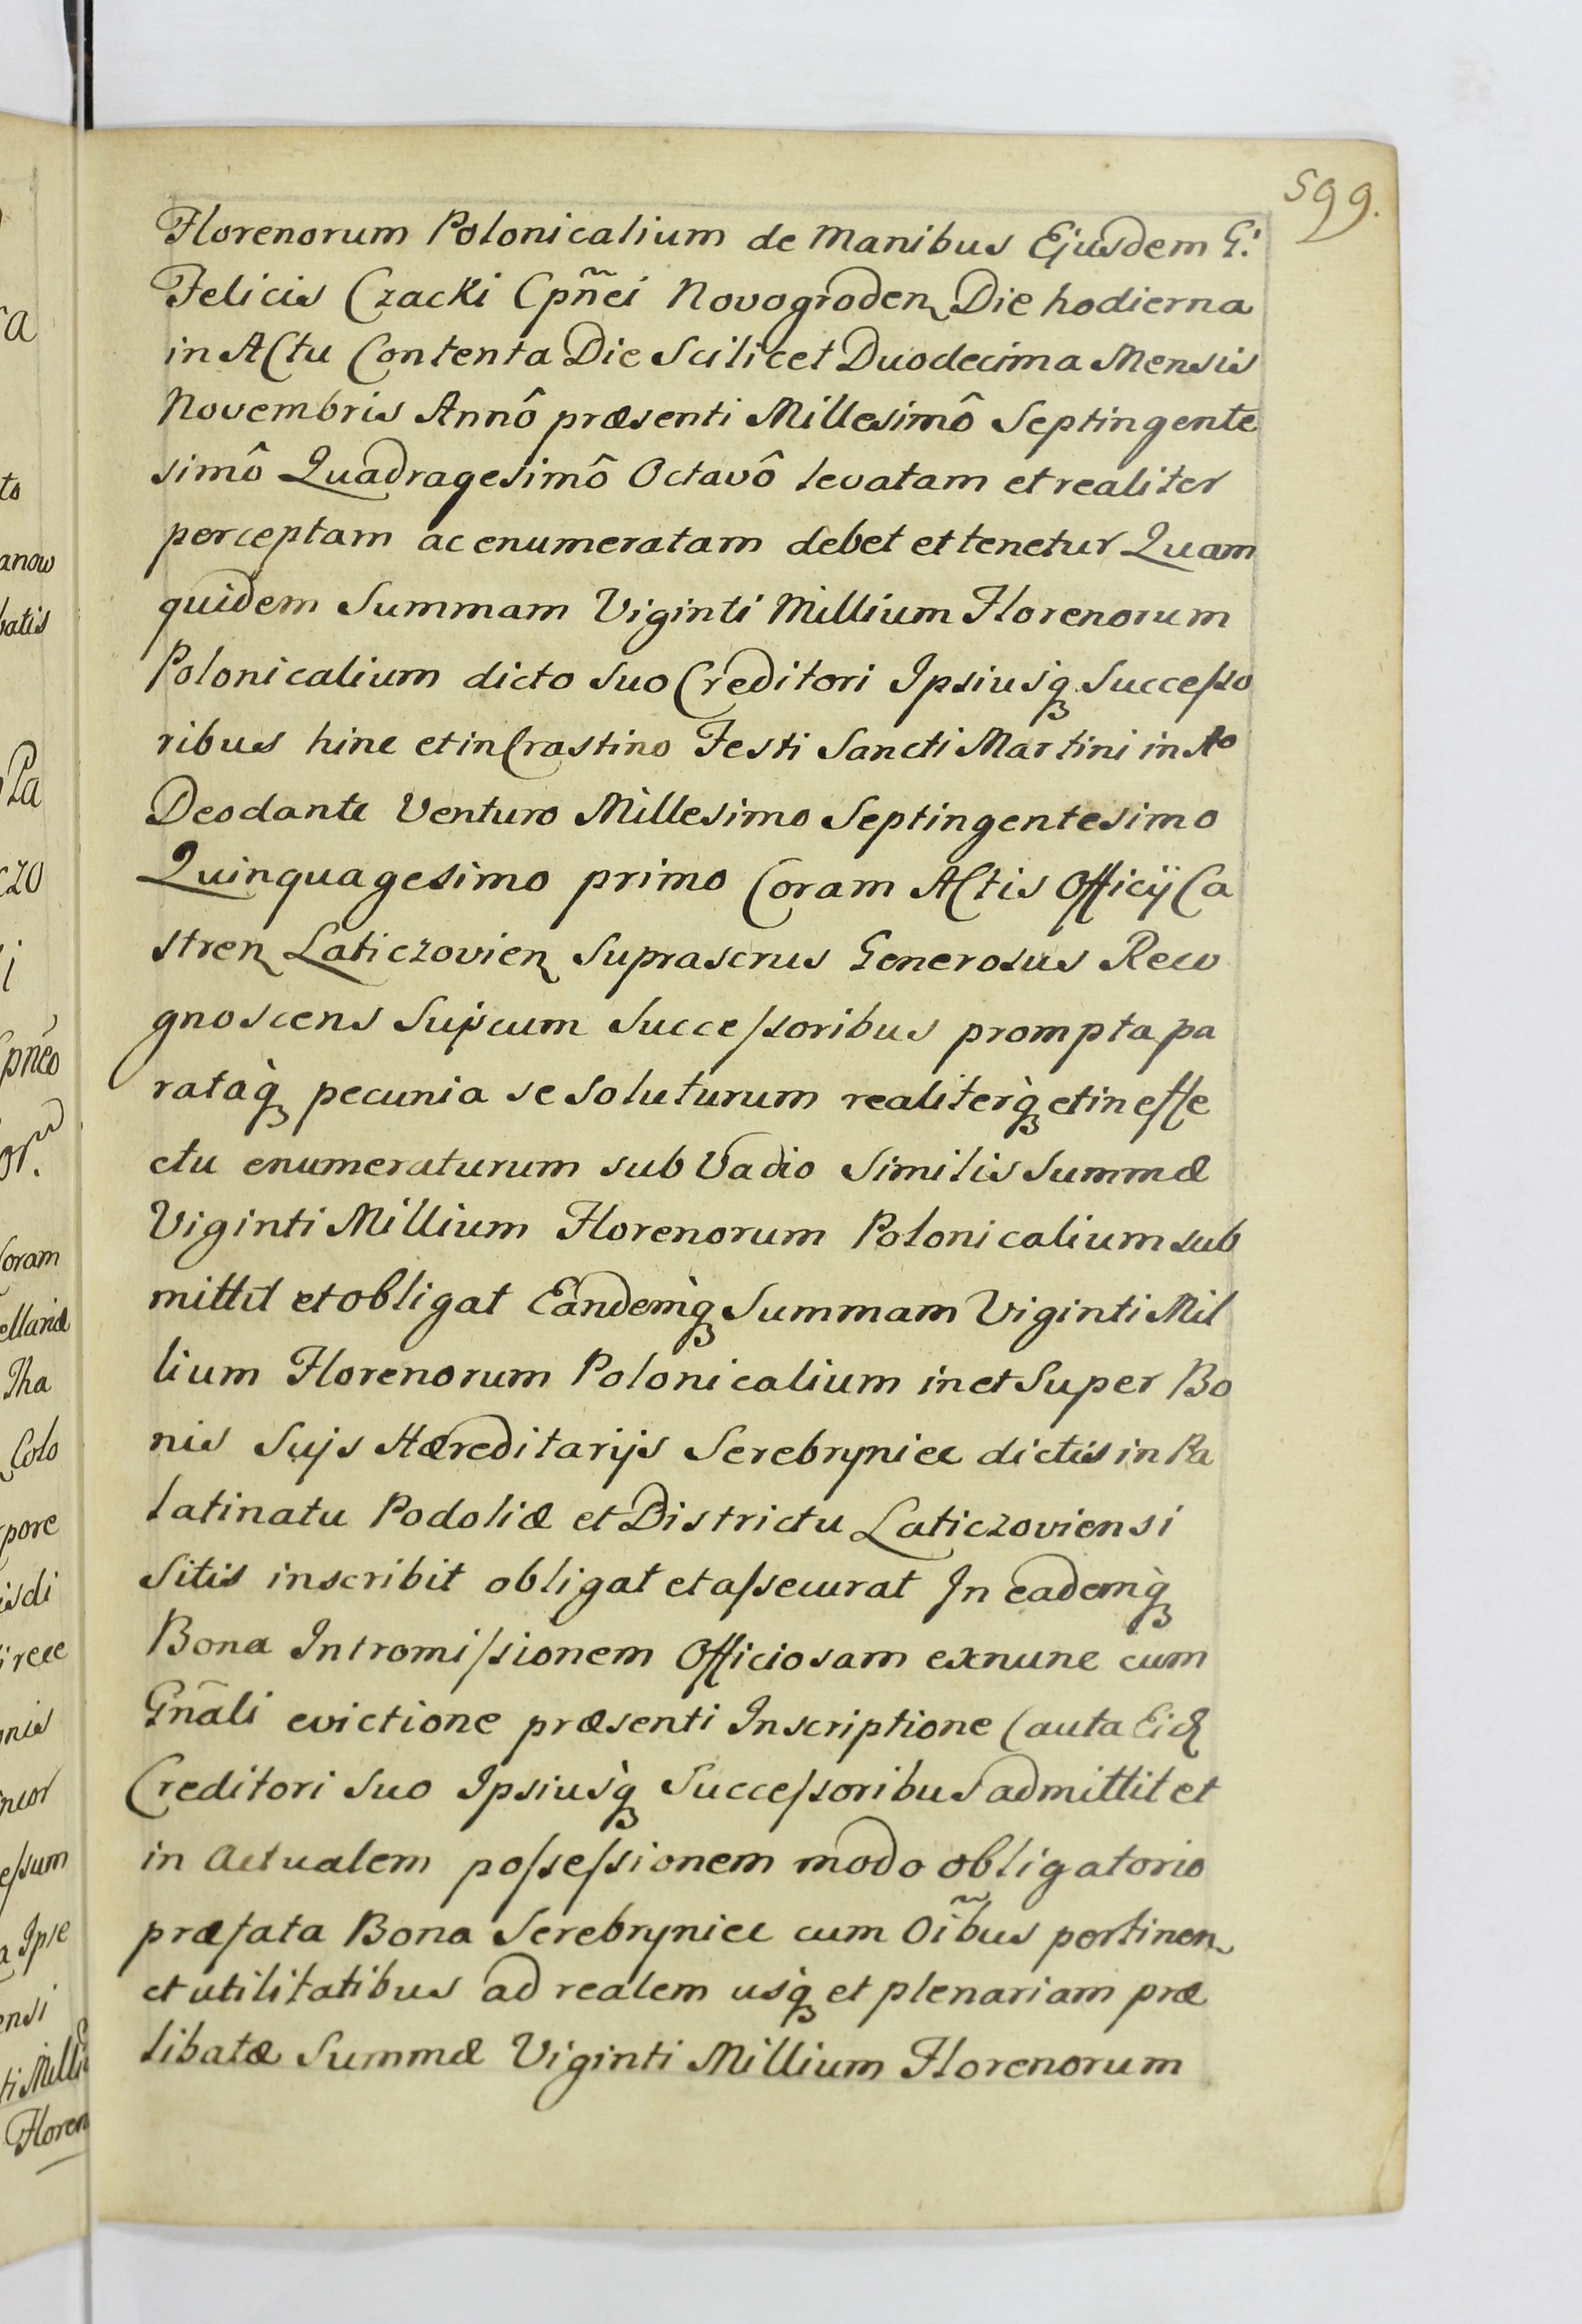 599.
Florenorum Polonicalium de Manibus Ejusdem G:
Felicis Czacki Cpn̄ei Novogroden Die hodierna
in Actu Contenta Die Scilicet Duodecima Mensis
Novembris Annô præsenti Millesimô Septingente
simô Quadragesimô Octavô levatam et realiter
perceptam ac enumeratam debet et tenetur Quam
quidem Summam Viginti Millium Florenorum
Polonicalium dicto Suo Creditori Ipsiusq̀ Succeſso
ribus hinc et in Crastino Festi Sancti Martini in Ao
Deodante Venturo Millesimo Septingentesimo
Quinquagesimo primo Coram Actis Officij Ca
stren Laticzovien Suprascrus Generosus Reco
gnoscens Suis cum Succeſsoribus prompta pa
rataq̀ pecunia se Soluturum realiterq̀ et in effe
ctu enumeraturum sub Vadio Similis Summæ
Viginti Millium Florenorum Polonicalium sub
mittit et obligat Eandemq̀ Summam Viginti Mil
lium Florenorum Polonicalium in et Super Bo
nis Sujs Hæreditarijs Serebryniec dictis in Pa
latinatu Podoliæ et Districtu Laticzoviensi
Sitis inscribit obligat et aſsecurat In eademq̀
Bona Intromiſsionem Officiosam exnunc cum
Gn̄ali evictione præsenti Inscriptione Cauta Eid
Creditori Suo Ipsiusq̀ Succeſsoribus admittit et
in Actualem poſseſsionem modo obligatorio
præfata Bona Serebryniec cum Oībus pertinen
et utilitatibus ad realem usq̀ et plenariam præ
libatæ Summæ Viginti Millium Florenorum